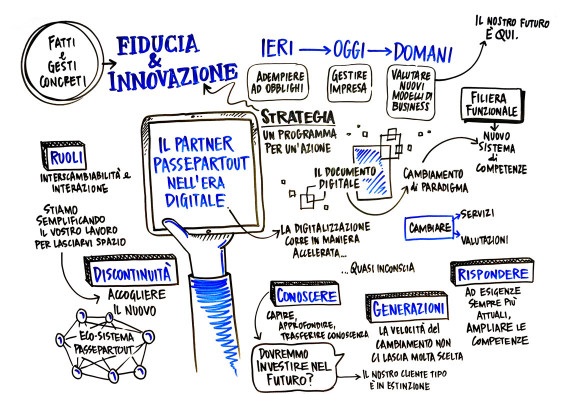 FATTI
e
GESTI
CONCRETI
FIDUCIA
&
INNOVAZIONE
IERI
OGGI
DOMANI
ADEMPIERE
AD OBBLIGHI
GESTIRE
IMPRESA
VALUTARE
NUOVI
MODELLI DI
BUSINESS
IL NOSTRO FUTURO
È QUI.
STRATEGIA
UN PROGRAMMA
PER UN'AZIONE
FILIERA
FUNZIONALE
NUOVO
SISTEMA
di
COMPETENZE
IL PARTNER
PASSEPARTOUT
NELL'ERA
DIGITALE
IL DOCUMENTO
DIGITALE
CAMBIAMENTO
di PARADIGMA
RUOLI
INTERSCAMBIABILITÀ e
INTERAZIONE
STIAMO
SEMPLIFICANDO
IL VOSTRO LAVORO
PER LASCIARVI SPAZIO
LA DIGITALIZZAZIONE
CORRE IN MANIERA
ACCELERATA...
...QUASI INCONSCIA
CAMBIARE
SERVIZI
VALUTAZIONI
DISCONTINUITÀ
ACCOGLIERE
IL NUOVO
ECO-SISTEMA
PASSEPARTOUT
CONOSCERE
CAPIRE,
APPROFONDIRE,
TRASFERIRE CONOSCENZA
DOVREMMO
INVESTIRE NEL
FUTURO?
GENERAZIONI
LA VELOCITÀ del
CAMBIAMENTO NON
CI LASCIA MOLTA SCELTA
IL NOSTRO CLIENTE TIPO
È IN ESTINZIONE
RISPONDERE
AD ESIGENZE
SEMPRE PIÙ
ATTUALI,
AMPLIARE LE
COMPETENZE